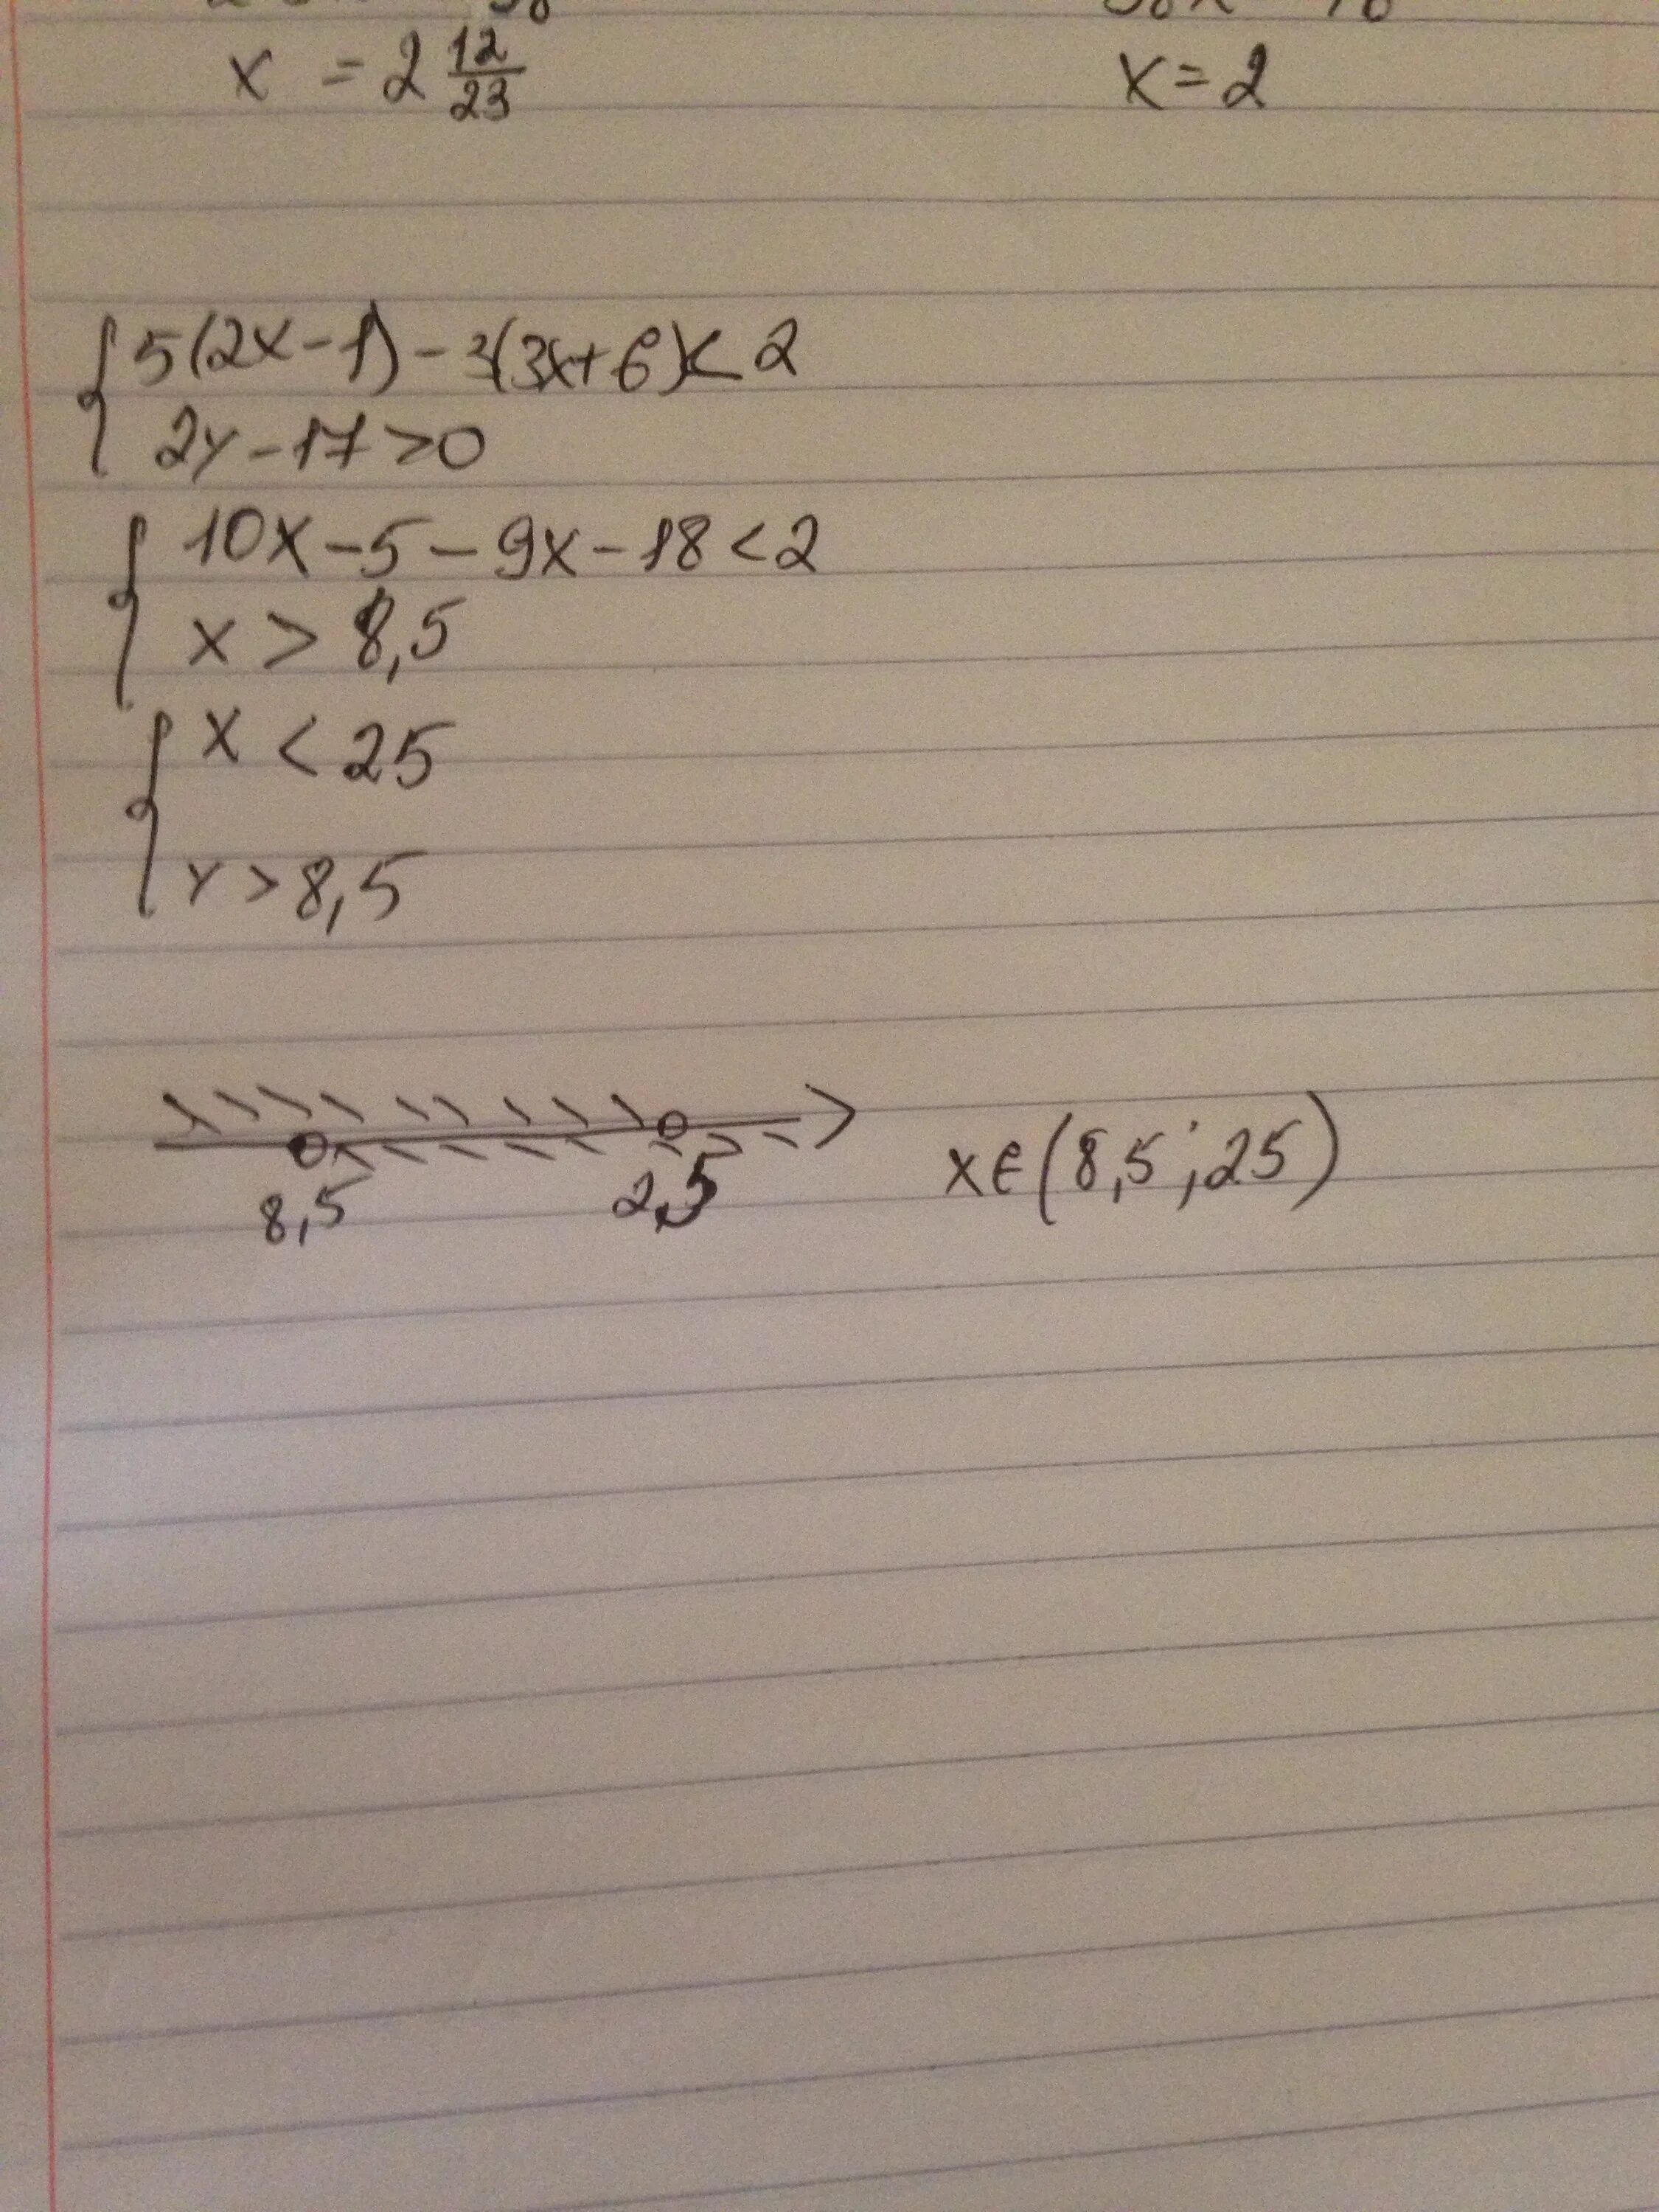 x = 2 12/23
x = 2
5(2x-1) - 3(3x+6) < 2
2x - 17 > 0
10x - 5 - 9x - 18 < 2
x > 8,5
x < 25
x > 8,5
8,5 2,5
x ∈ (8,5 ; 25)